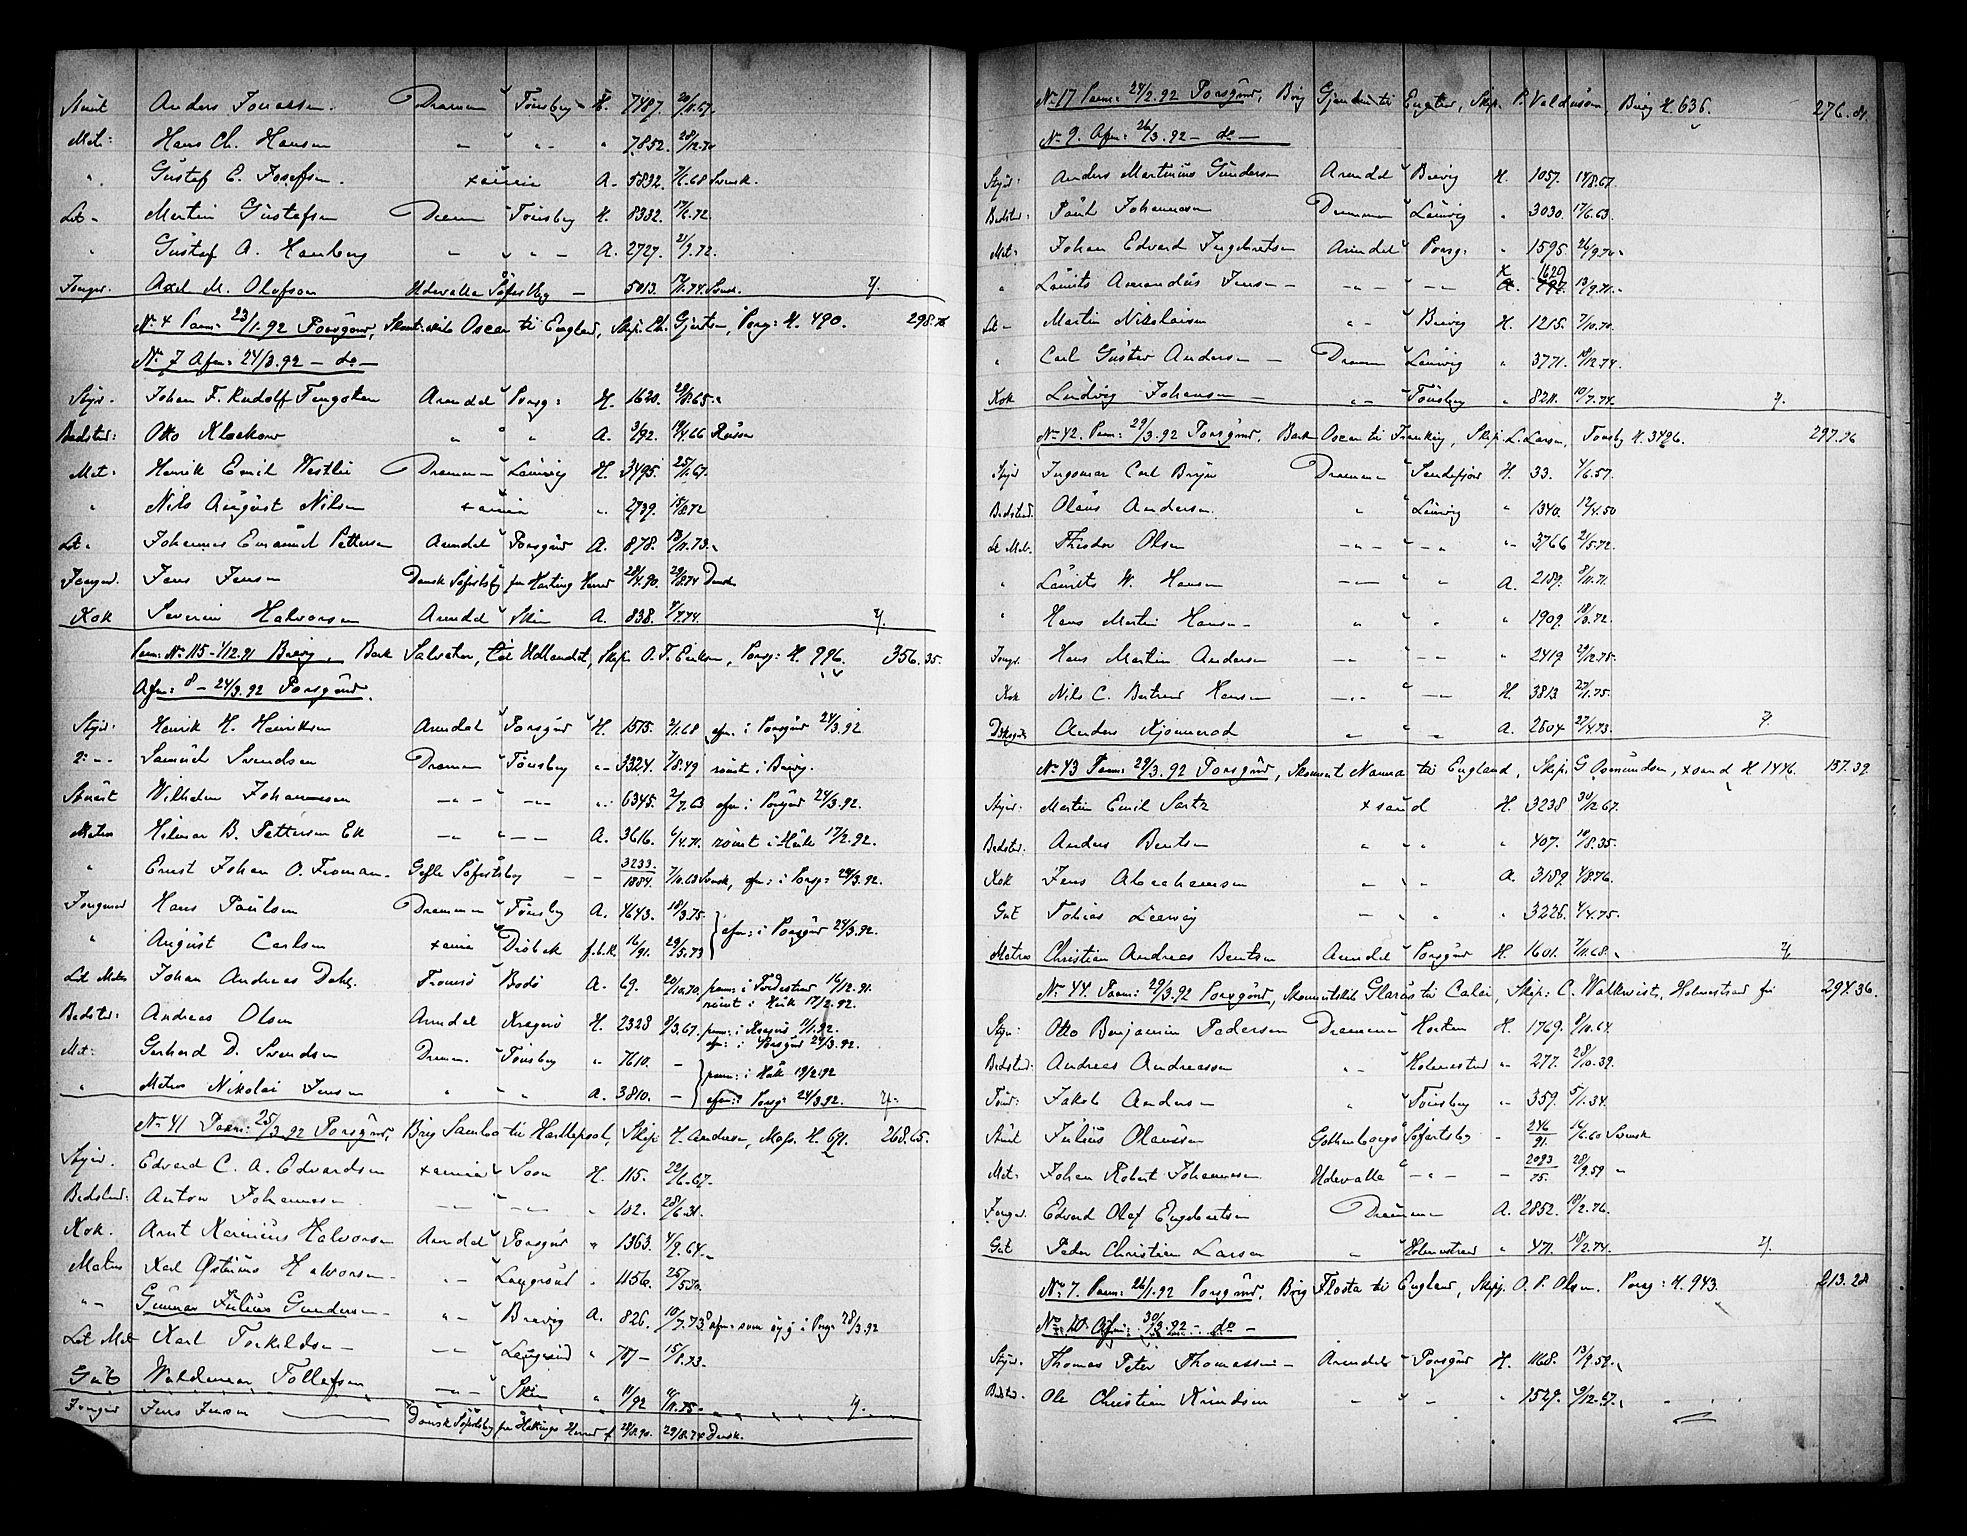 Anders Jonassen. Drammen Tönsberg 7487. 20/11.67.
Mat: Hans Ch. Hansen " " " 7852. 28/12.70
" Gustaf E. Josefsen. Xania A. 5832. 7/1.68 Svensk.
Let - Martin Gustafsen Dramm Tönsberg H. 8332. 17/6.72.
" Gustaf A. Hamberg " " " A. 2727. 21/9.72.
Jungm. Axel M. Olofson Udevalla Söfartsbg - 5013. 17/1.74. Svensk. 7.
No 4 Paam: 23/1.92 Porsgrund, Skonnertskib Oscar til England, Skip: Chr. Gjertsen, Porsg: H. 490. 298.76
No 7 Afm: 24/3.92 - do -
Styr. Johan F. Rudolf Arendal Porsg: H. 1620. 29/8.65.
Bedstm: Otto Klackow " " " A. 3/92. 19/4.66 Russe
Mat: Henrik Emil Westlie Drammen Laurvig H. 3495. 25/1.67.
" Nils August Nilsen Xania " 2739. 14/8.72
Let. Johannes Emanuel Pettersen Arendal Porsgrund A. 878. 13/11.73.
Jungm. Jens Jensen Dansk Söfartsbg fra Hatting Herred 28/4.90. 29/8.74 Dansk
Kok Severin Halvorsen Arendal Skien A. 838. 4/7.74. 7.
Paam: No 115 - 1/12.91 Brevig. Bark Salvator, til Udlandet, Skip: O. T. Eriksen, Porsg: H. 996. 356.35.
Afm: 8 - 24/3.92 Porsgrund.
Styr: Henrik H. Henriksen Arendal Porsgrund H. 1515. 2/1.68 afm: i Porsgrund 24/3.92
2: - - Samuel Svendsen Drammen Tönsberg - - 3324. 7/8.49 römt i Brevig.
Wilhelm Johannessen - " - " - " - " : 6345. 2/7.63 afm: i Porsgrund 24/3.92.
Matros Hilmar B. Pettersen Ek - " - " - - A. 3616. 6/4.71. römt i Hull 17/2.92.
" Ernst Johan O. Froman. Gefle Söfartsbg - - 3233/1884. 7/10.63 Svensk, afm: i Porsg: 24/3.92.
Jungmand Hans Paulsen Drammen Tönsberg A. 4643. 18/3.75.
" August Carlsen Xania Dröbak f.b.k. 16/91. 29/5.73 afm: i Porsgrund 24/3.92.
Let Matros Johan Andreas Dahl. Tromsö Bodö A. 69. 20/10.70. paam: i Fredrikstad 14/12.91.
römt i Hull 17/2.92.
Bedstm: Andreas Olsen Arendal Kragerö H. 2328 9/3.67. paam: i Kragerö 11/1.92.
afm: i Porsgrund 24/3.92.
Mat: Gerhard D. Svendsen Dramm. Tönsberg " 7610. - paam: i Hull 19/2.92
" Matros Nikolai Jensen " " " A. 3810. - afm: i Porsg: 24/3.92. 7.
No 41 Paam: 25/3.92 Porsgrund, Brig Samba til Hartlepool, Skip: H. Andersen, Moss. H. 691. 268.65.
Styr. Edvard C. A. Edvardsen Xania Soon H. 115. 22/6.67.
Bedstm: Anton Johannessen - - - " - " - " 102. 28/6.31.
Kok. Arnt Karinius Halvorsen Arendal Porsgrund " 1363. 4/9.64.
Matros Karl Halvorsen - " - Langesund " 1156. 25/5.50.
" - Gunnar Julius Gundersen - " - Brevig A. 826. 10/7.73. afm: som syg i Porsg: 28/3.92
Let Mat Karl Torkildsen - - " - Langesund " 717 - 15/8.73.
Gut Waldemar Tollefsen - " - Skien " 11/92 4/11.75. 7.
Jungm Jens Jensen Dansk Söfartsbg fra Hattings Herred f. 28/4.90. 29/8.74 Dansk.
No 17 Paam: 24/2.92 Porsgrund, Brig til England, Skip. P. Brvig H. 636. 276.81
No 9. Afm: 26/3.92 - do -
Styr: Anders Martinius Gundersen Arendal Brevig H. 1057. 14/8.67.
Bedstm: Paul Johannessen Drammen Laurvig " 3030. 17/6.63.
Mat: Johan Edvard Ingebretsen Arendal Porsg: " 1595. 26/9.70.
" Laurits Amandus Jensen - " - " - " - 1629 797 19/9.71.
Let - Martin Nikolaisen " - Brevig H. 1215. 7/10.70.
" Carl Gustav Andersen - Dramm Laurvig " 3771. 18/12.74.
Kok Ludvig Johansen - " - Tönsberg " 8211. 10/7.74. 7.
No 42. Paam: 29/3.92 Porsgrund, Bark Oscar til Frankrig, Skip. L. Larsen, Tönsberg H. 3426. 297.76
Styr Ingomar Carl Bryn Drammen Sandefjord H. 33. 4/6.57.
Bedstmd. Olaus Andersen. " Laurvig " 1340. 12/4.50
Let Mat. Theodor Olsen - " - - " - " 3766 21/5.72.
" Laurits W. Hansen - " - " " A. 2189. 8/11.71.
" Hans Martin Hansen - " " " " 1909. 18/3.72.
Jungm. Hans Martin Andersen - " - - " - " 2419 29/12.75.
Kok Nils C. Bertrand Hansen - " - - " - H. 3813 27/1.75.
Anders Kjonnerod " " " A. 2604 27/4.73. 7.
No 43 Paam: 29/3.92 Porsgrund, Skonnert Nanna til England, Skip. G Osmundsen, Xsand H 1446. 137.39
Styr: Martin Emil Xsand H. 3238 30/12.67.
Bedstm. Anders Bentsen " " " " 407. 19/8.35.
Kok Jens Abrahamsen " " " A. 3189 4/8.76.
Gut Tobias - " " " 3226. 4/4.75.
Matros Christian Andreas Bentsen Arendal Porsgrund H. 1601. 7/11.68. 7.
No 44. Paam: 29/3.92 Porsgrund, Skonnertskib Glarus til Calais, Skip: C. Walkvist, Holmestrand 294.36.
Styr: Otto Benjamin Pedersen Drammen Horten H. 1769. 8/10.64.
Bedstm: Andreas Andreassen " - Holmestrand " 277. 28/10.39.
Jakob Andersen " Tönsberg " 359. 5/1.34.
Julius Olaussen Gothenborgs Söfartsbg - 246/91. 16/6.60 Svensk
Mat: Johan Robert Johannessen. Udevalla - " - - 2093/75. 28/9.59 "
Jungm. Edvard Olof Engebretsen Drammen A. 2852. 19/2.76.
Gut Peder Christian Larsen " Holmestrand " 471. 18/2.74. 7.
No 7. Paam: 26/1.92 Porsgrund, Brig Flosta til England, Skip. O. P. Olsen. Porsg: H. 943. 213.28
No 10. Afm: 30/3.92 - do -
Styr: Thomas Peter Thomassen - Arendal Porsgrund H. 1168. 13/9.59.
Bedstm. Ole Christian Knudsen " " - " 1529. 9/12.67.